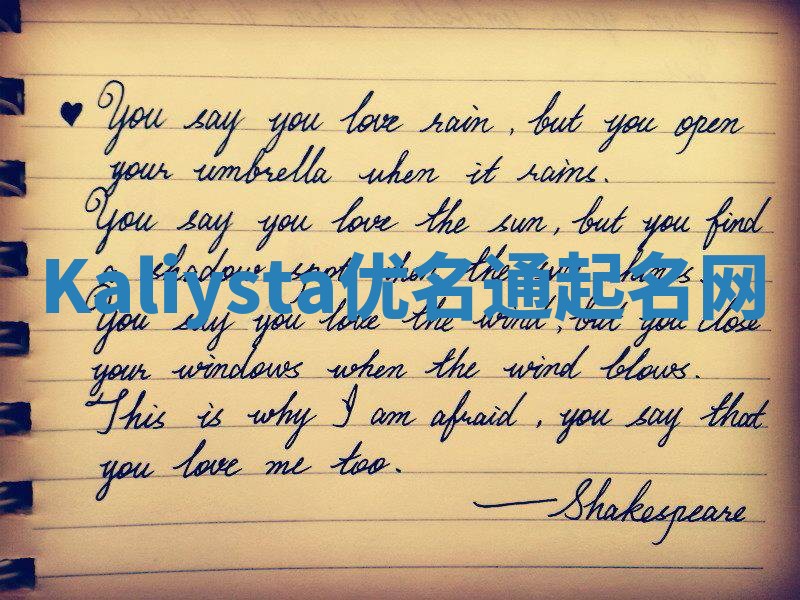 ♥ You say you love rain, but you open
your umbrella when it rains.
You say you love the sun, but you find
a shadow spot when the sun shines.
Kaliysta优名通起名网
You say you love the wind, but you close
your windows when the wind blows.
This is why I am afraid, you say that
you love me too.
—Shakespeare